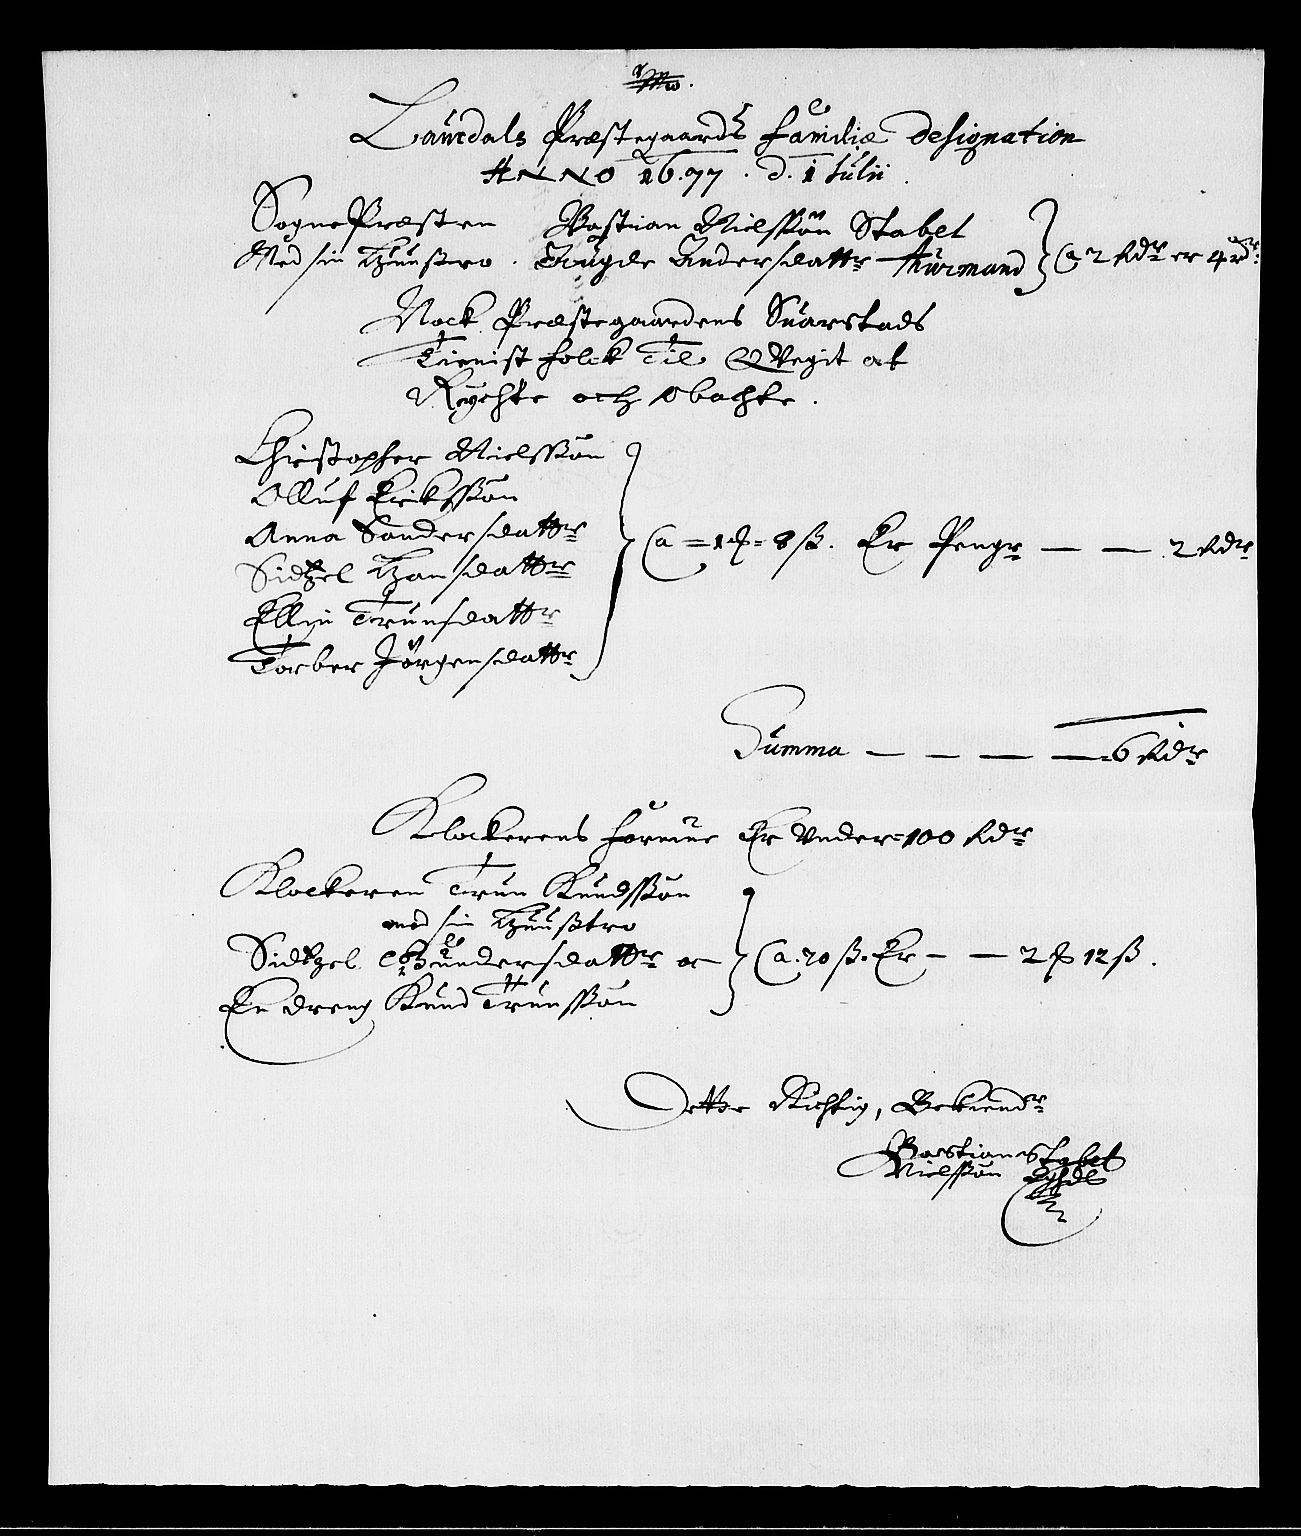 Laurdals Præstegaards familiæ designation
ANNO 1677. d. 1 Iulii.
SognePræsten Bastian Nielssøn Stabel
Med sin Hustro. Andersdattr Thurmand } Ca 2 Rdr er 4 rdr
Nock Præstegaardens Suarstads
Tienist folck Til Qvegit at
Rychte och Obachte.
Christopher Nielssøn
Olluf Erikssøn
Anna Sandersdattr
Sidtzel Hansdattr
Ellin Trunsdattr
Torber Jörgensdattr
} Ca = 1 = 8 ß. Er Pengr — — 2 Rdr
Summa — — — — 6 Rdr
Klockerens formue Er Vnder 100 Rdr
Klockeren Trun Knudssøn
med sin Hustro
Sidtzel Gundersdattr oc
En dreng Knud Trunssøn
} Ca. 20 ß. Er — — 2 12 ß.
Dette Richtig, Bekiendr
Bastian Stabel
Nielssøn